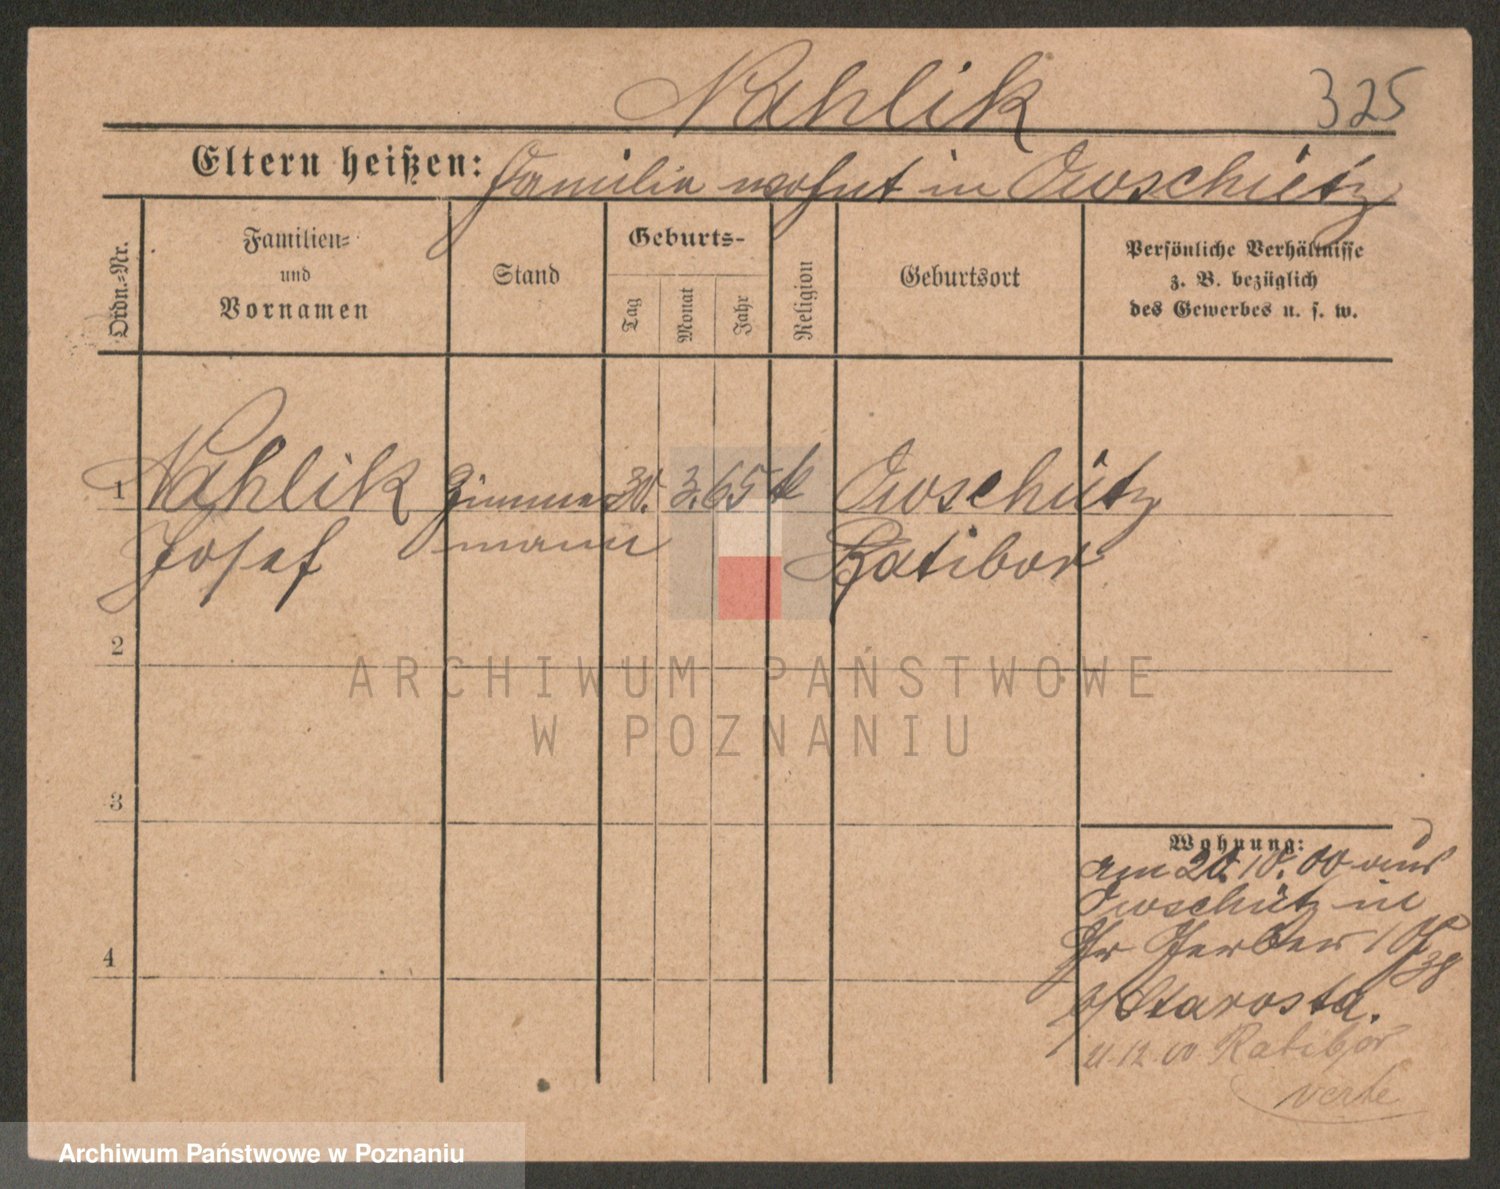 Nahlik
325
Eltern heißen: Familie wohnt in Owschütz
Ordn.-Nr.
Familien-
und
Vornamen
Stand
Geburts-
Tag
Monat
Jahr
Religion
Geburtsort
Persönliche Verhältnisse
z. B. bezüglich
des Gewerbes u. s. w.
1 Nahlik Zimmer 30. 3. 65 k Owschütz
Josef mann Ratibor
2
ARCHIWUM PAŃSTWOWE
W POZNANIU
3
Wohnung:
am 20.10.00 aus
Owschütz in
Gr Gerber
38
b/Starosta.
12 00 Ratibor
verte
4
Archiwum Państwowe w Poznaniu